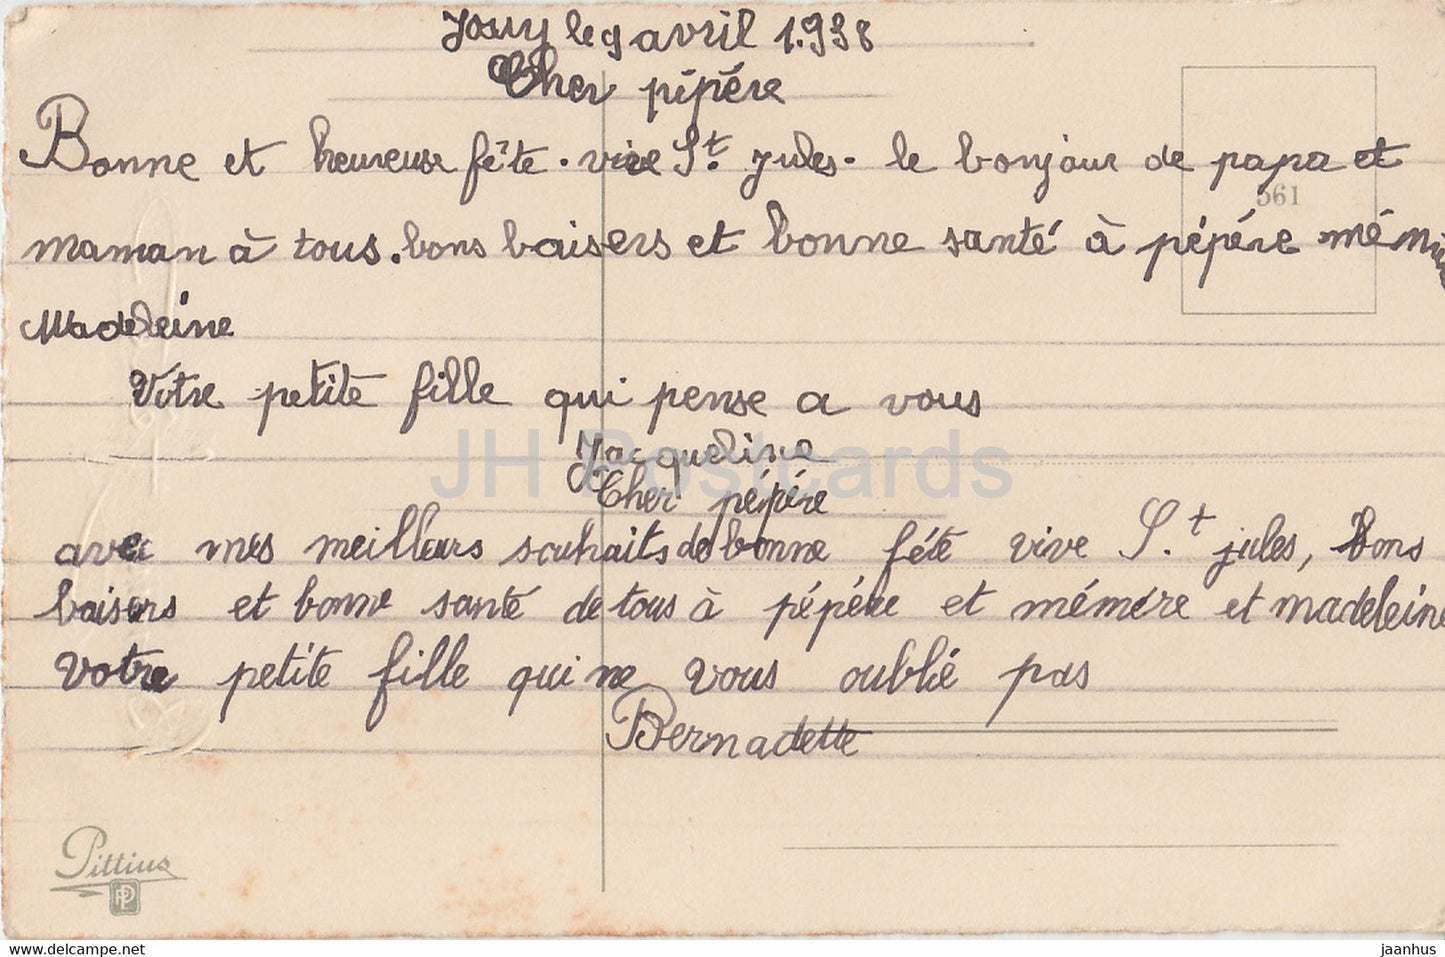 Jouy le 9 avril 1.938
Cher pépére
Bonne et heureuse fête. vive St. Jules. le bonjour de papa et
561
maman à tous. bons baisers et bonne santé à pépére
Madeleine
Votre petite fille qui pense a vous
Jacqueline
JH Postcards
Cher pépére
avec mes meilleurs souhaits de bonne féte vive S.t jules, bons
baisers et bonne santé de tous à pépére et mémére et madeleine
Votre petite fille qui ne vous oublié pas
Bernadette
Pittius
PP
www.delcampe.net
jaanhus